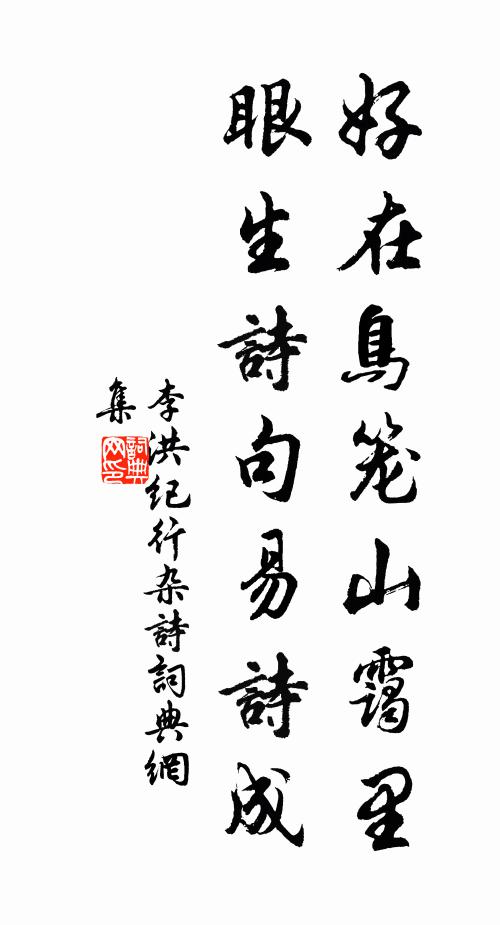 好在鳥笼山靄里
眼生詩句易詩成
李洪纪行杂詩詞典網
集
詞典
网印